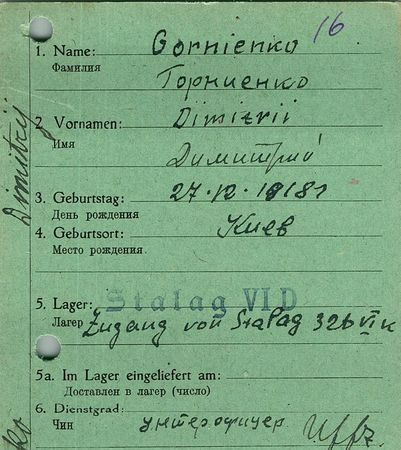 16
1. Name: Gornienko
Фамилия
Горниенко
2. Vornamen: Dimitrii
Имя
Димитрий
3. Geburtstag: 27.12.
День рождения
4. Geburtsort: Киев
Место рождения.
5. Lager: Stalag VI D
Лагер Zugang von Stalag 326 VI K
5a. Im Lager eingeliefert am:
Доставлен в лагер (число)
6. Dienstgrad:
Чин унтерофицер Uffz.
Dimitrij
ko